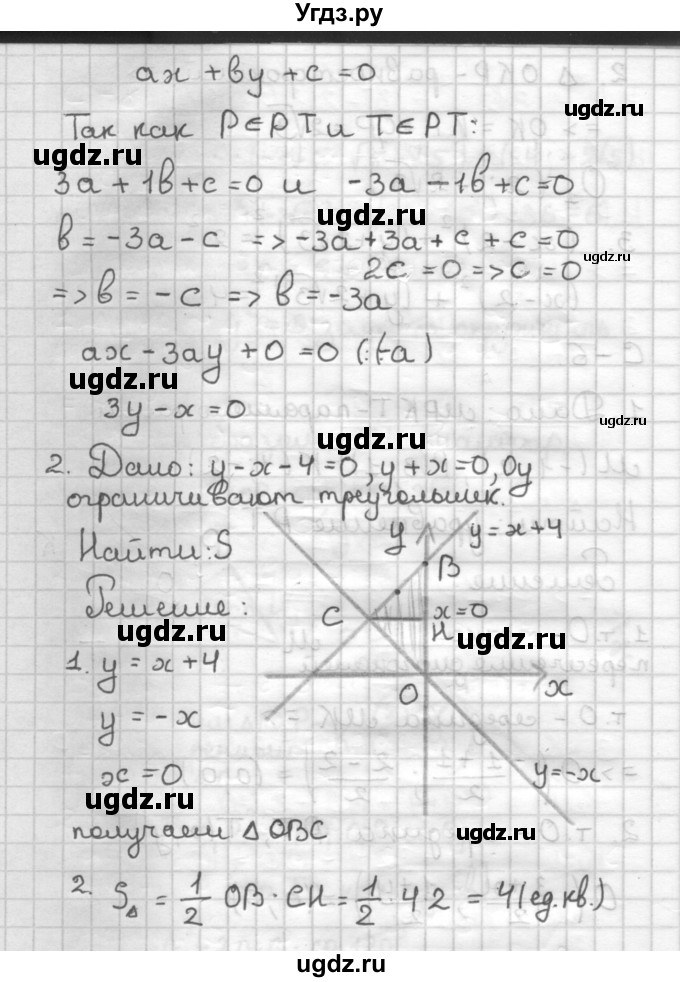 Угдз.ру
ax + by + c = 0
Так как P∈PT и T∈PT:
ugdz.ru
ugdz.ru
3a + 1b + c = 0 и -3a - 1b + c = 0
ugdz.ru
b = -3a - c => -3a + 3a + c + c = 0
ugdz.ru
2c = 0 => c = 0
=> b = -c => b = -3a
ugdz.ru
ax - 3ay + 0 = 0 (:(-a)
ugdz.ru
3y - x = 0
ugdz.ru
ugdz.ru
2. Дано: y - x - 4 = 0, y + x = 0, Oy
ограничивают треугольник.
Найти: S
y y = x + 4
B
Решение:
C x = 0
H
ugdz.ru
ugdz.ru
1. y = x + 4
O x
y = -x
x = 0
y = -x
ugdz.ru
получаем Δ OBC
ugdz.ru
2. SΔ = 1/2 OB · CH = 1/2 · 4 · 2 = 4 (ед. кв.)
ugdz.ru